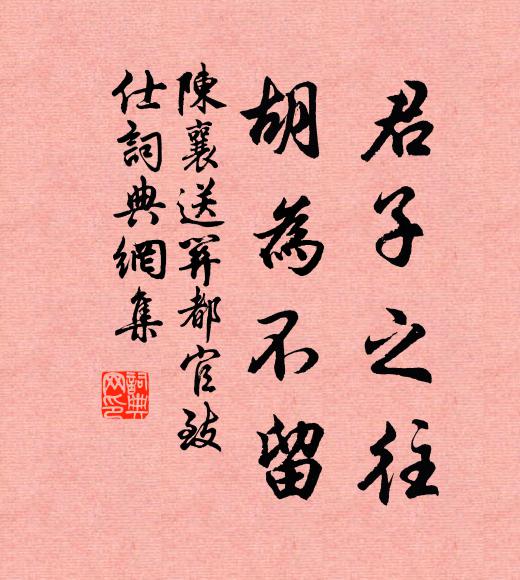 君子之往
胡為不留
陳襄送羿都官致
仕詞典網集
詞典
网印